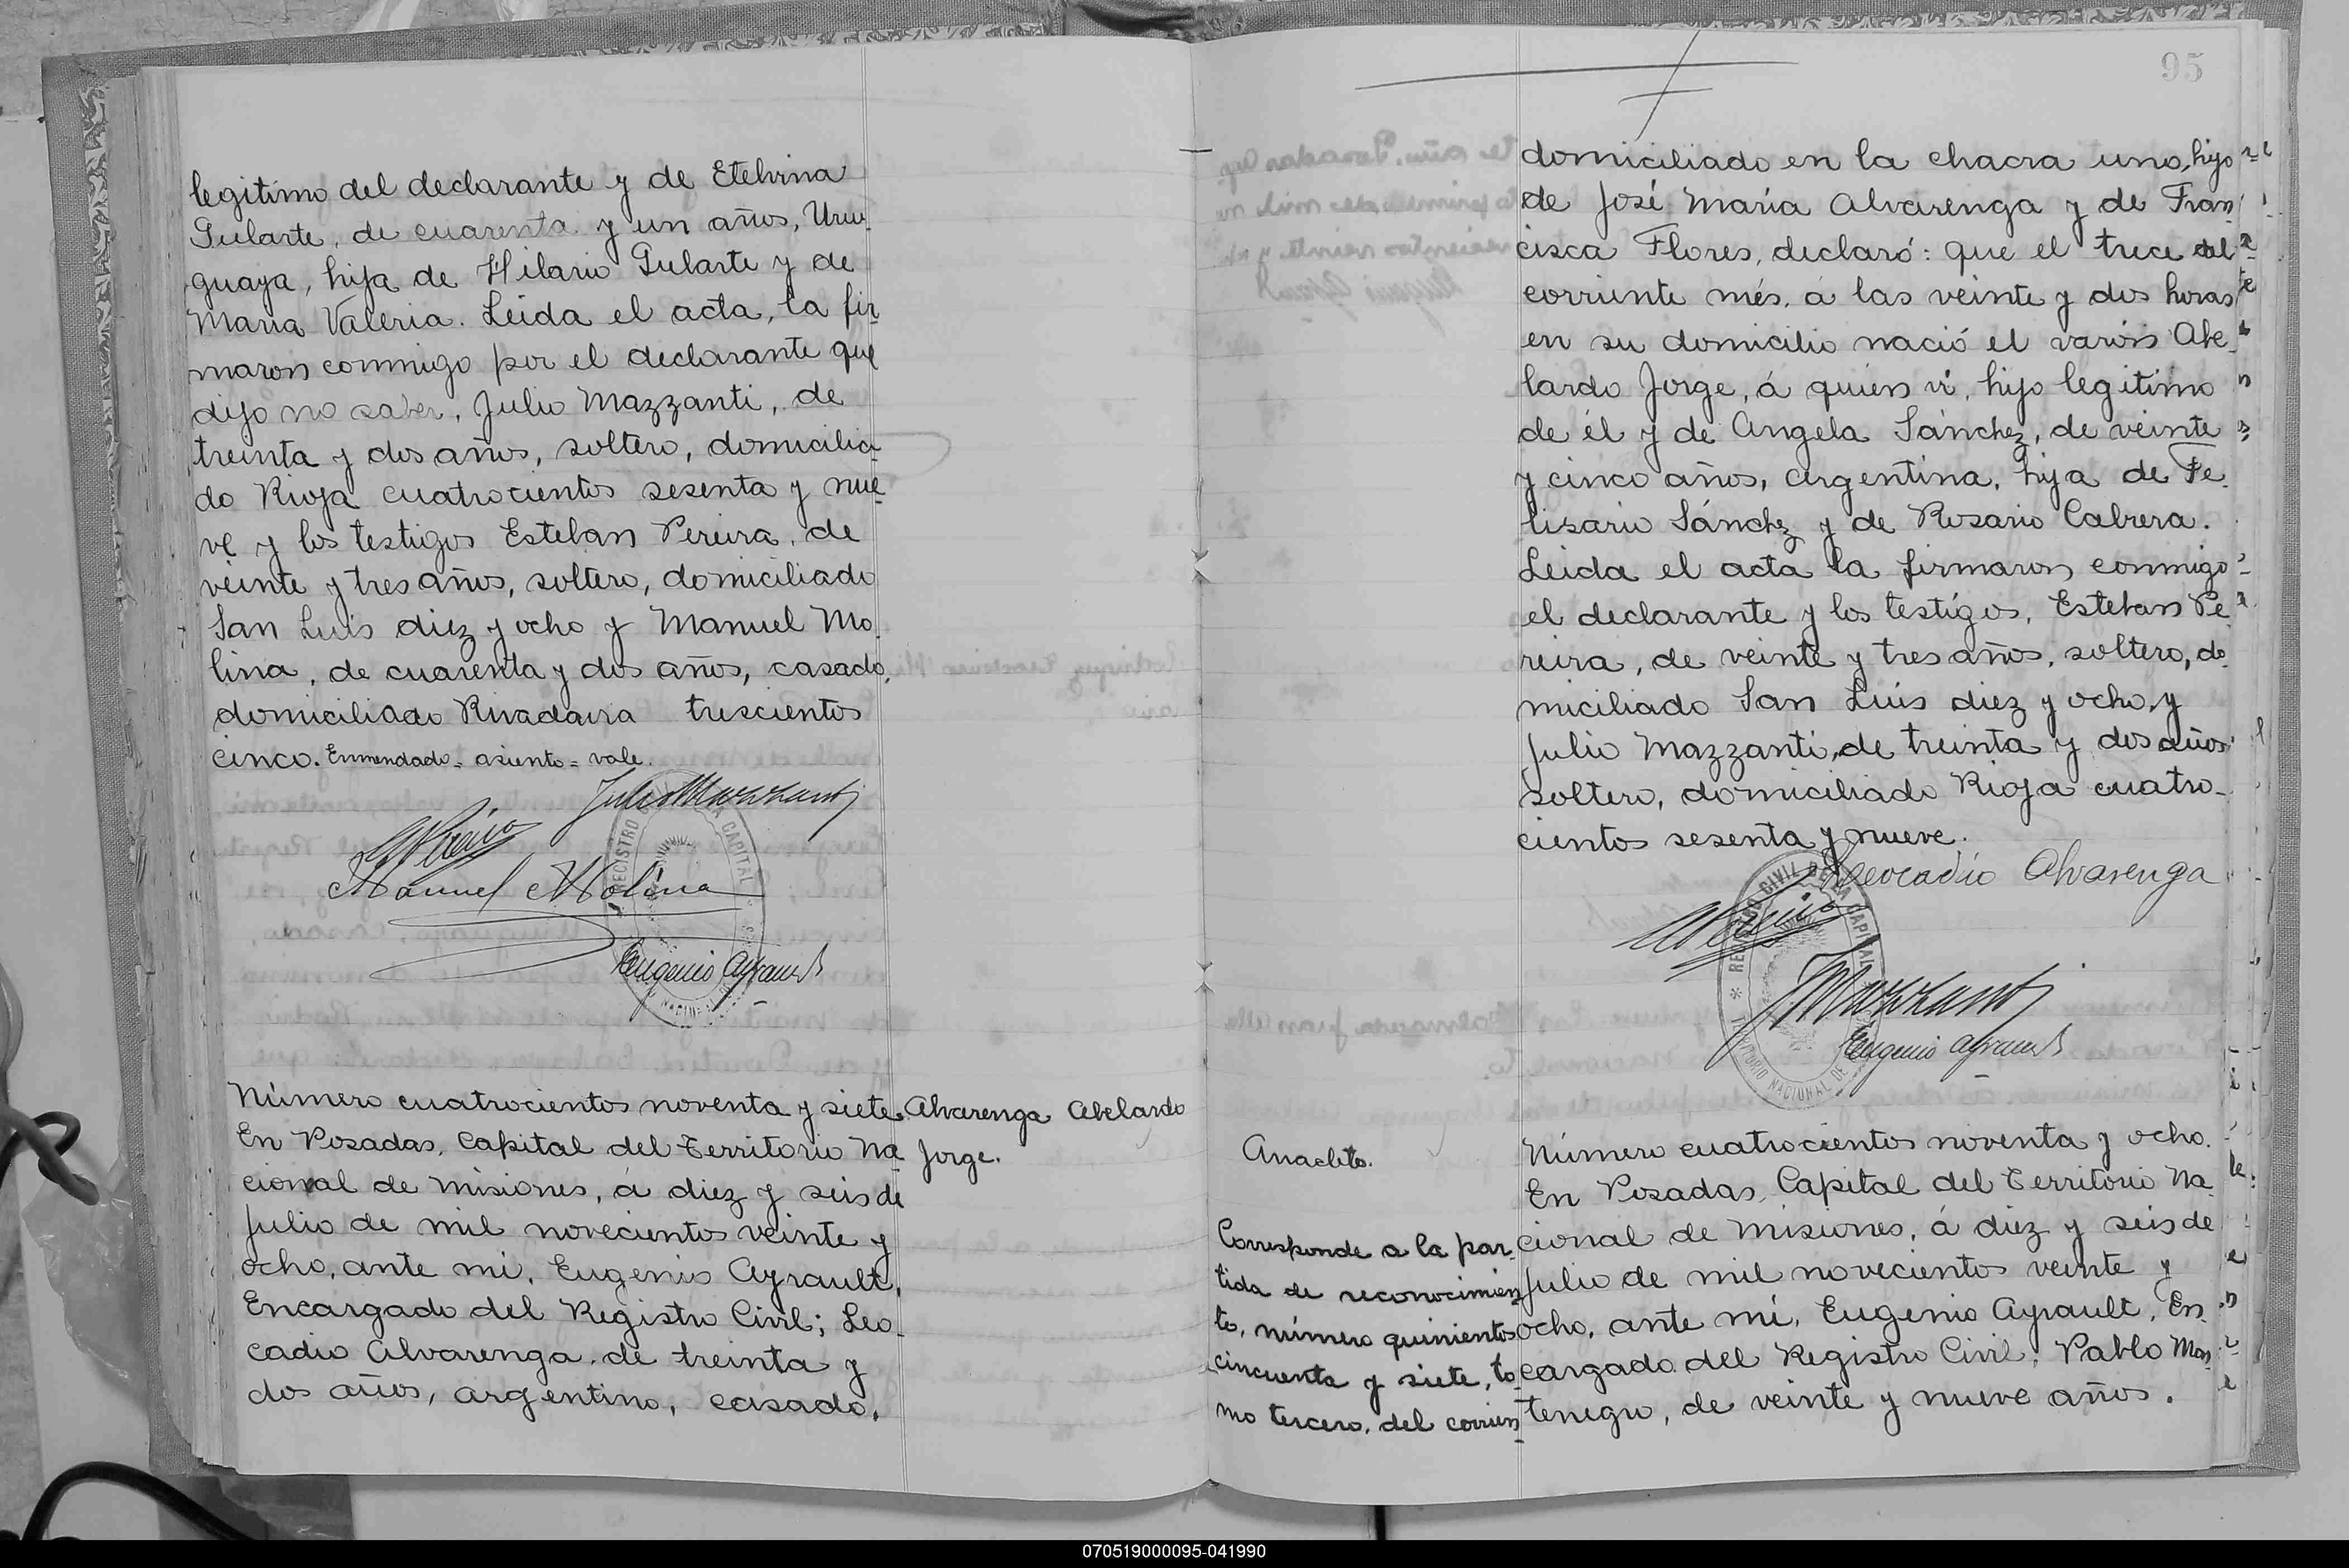 legitimo del declarante y de Etelvina
Pularte, de cuarenta y un años, Uru-
guaya, hija de Hilario Pularte y de
Maria Valeria. Leida el acta, la fir-
maron conmigo por el declarante que
dijo no saber, Julio Mazzanti, de
treinta y dos años, soltero, domicilia-
do Rioja cuatrocientos sesenta y nue-
ve y los testigos Esteban Pereira, de
veinte y tres años, soltero, domiciliado
San Luis diez y ocho y Manuel Mo-
lina, de cuarenta y dos años, casado,
domiciliado Rivadavia trescientos
cinco. Enmendado = asiento = vale.
Julio Mazzanti
Manuel Molina
Eugenio Ayrault
Número cuatrocientos noventa y siete.
En Posadas, Capital del Territorio Na-
cional de Misiones, á diez y seis de
Julio de mil novecientos veinte y
ocho, ante mi, Eugenio Ayrault,
Encargado del Registro Civil; Leo-
cadio Alvarenga, de treinta y
dos años, argentino, casado,
Alvarenga Abelardo
Jorge.
95
domiciliado en la chacra uno, hijo
de José María Alvarenga y de Fran-
cisca Flores, declaró: que el trece del
corriente més, á las veinte y dos horas
en su domicilio nació el varón Abe-
lardo Jorge, á quien ví, hijo legitimo
de él y de Angela Sánchez, de veinte
y cinco años, argentina, hija de Fe-
lisario Sánchez y de Rosario Cabrera.
Leida el acta la firmaron conmigo
el declarante y los testigos, Esteban Pe-
reira, de veinte y tres años, soltero, do-
miciliado San Luis diez y ocho, y
Julio Mazzanti, de treinta y dos años
soltero, domiciliado Rioja cuatro-
cientos sesenta y nueve.
Leocadio Alvarenga
J Mazzanti
Eugenio Ayrault
Anacleto.
Corresponde a la par-
tida de reconocimien-
to, número quinientos
cincuenta y siete, to-
mo tercero, del corrien-
Número cuatrocientos noventa y ocho.
En Posadas, Capital del Territorio Na-
cional de Misiones, á diez y seis de
Julio de mil novecientos veinte y
ocho, ante mi, Eugenio Ayrault, En-
cargado del Registro Civil; Pablo Mon-
tenegro, de veinte y nueve años,
070519000095-041990